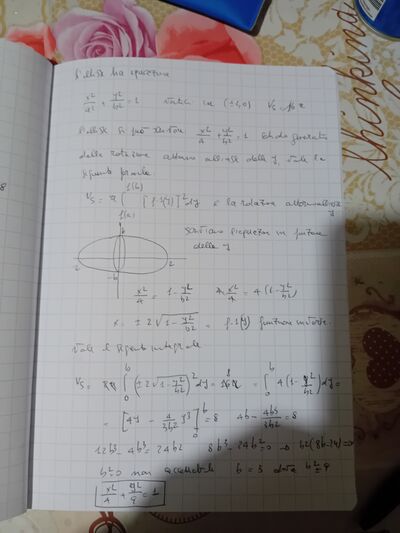 l'ellisse ha equazione
x²/a² + y²/b² = 1 vertici in (±2,0) Vs = 16π
l'ellisse si può scrivere x²/4 + y²/b² = 1
della rotazione attorno all'asse delle y, vale la
seguente formula
Vs = π ∫ f(a) f(b) [f-1(y)]² dy è la rotazione attorno all'asse y
scriviamo l'equazione in funzione
delle y
b
2 2
-b
x²/4 = 1 - y²/b² 4 x²/4 = 4(1 - y²/b²)
x = ±2√(1 - y²/b²) = f-1(y) funzione inversa
vale il seguente integrale
Vs = 2π ∫ 0 b (±2√(1 - y²/b²))² dy = 16π 8 = ∫ 0 b 4(1 - y²/b²) dy =
= [4y - 4/3b² y³] 0 b = 8 4b - 4b³/3b² = 8
12b³ - 4b³ = 24b² 8b³ - 24b² = 0 → b²(8b-24) = 0
b² = 0 non accettabile b = 3 da cui b² = 9
x²/4 + y²/9 = 1
8
thinking